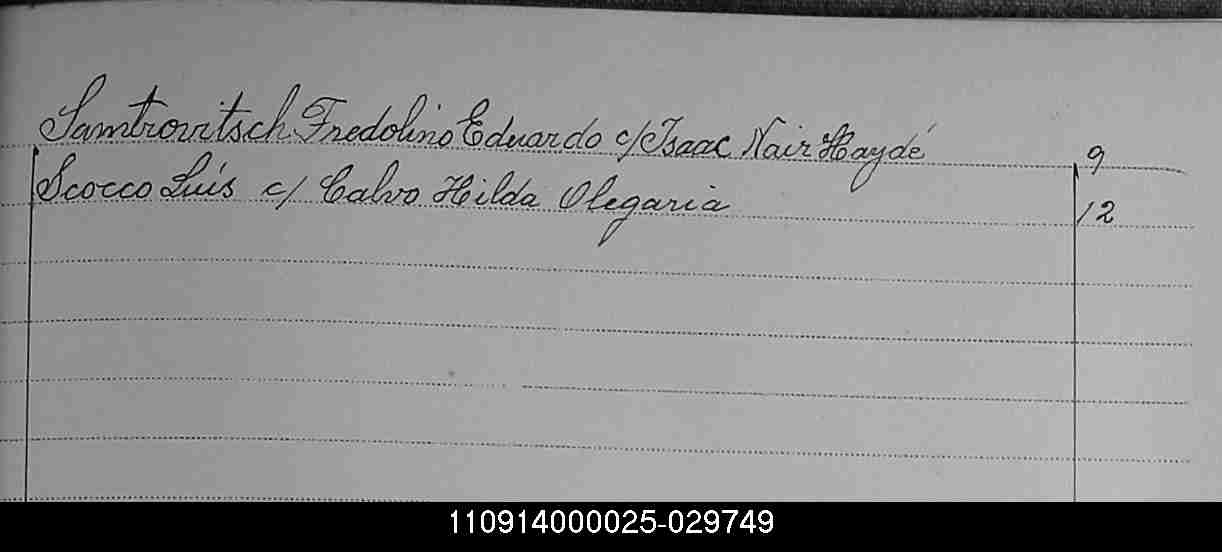 Samtrovitsch Fredolino Eduardo c/ Isaac Nair Haydé 9
Scocco Luís c/ Calvo Hilda Olegaria 12
110914000025-029749